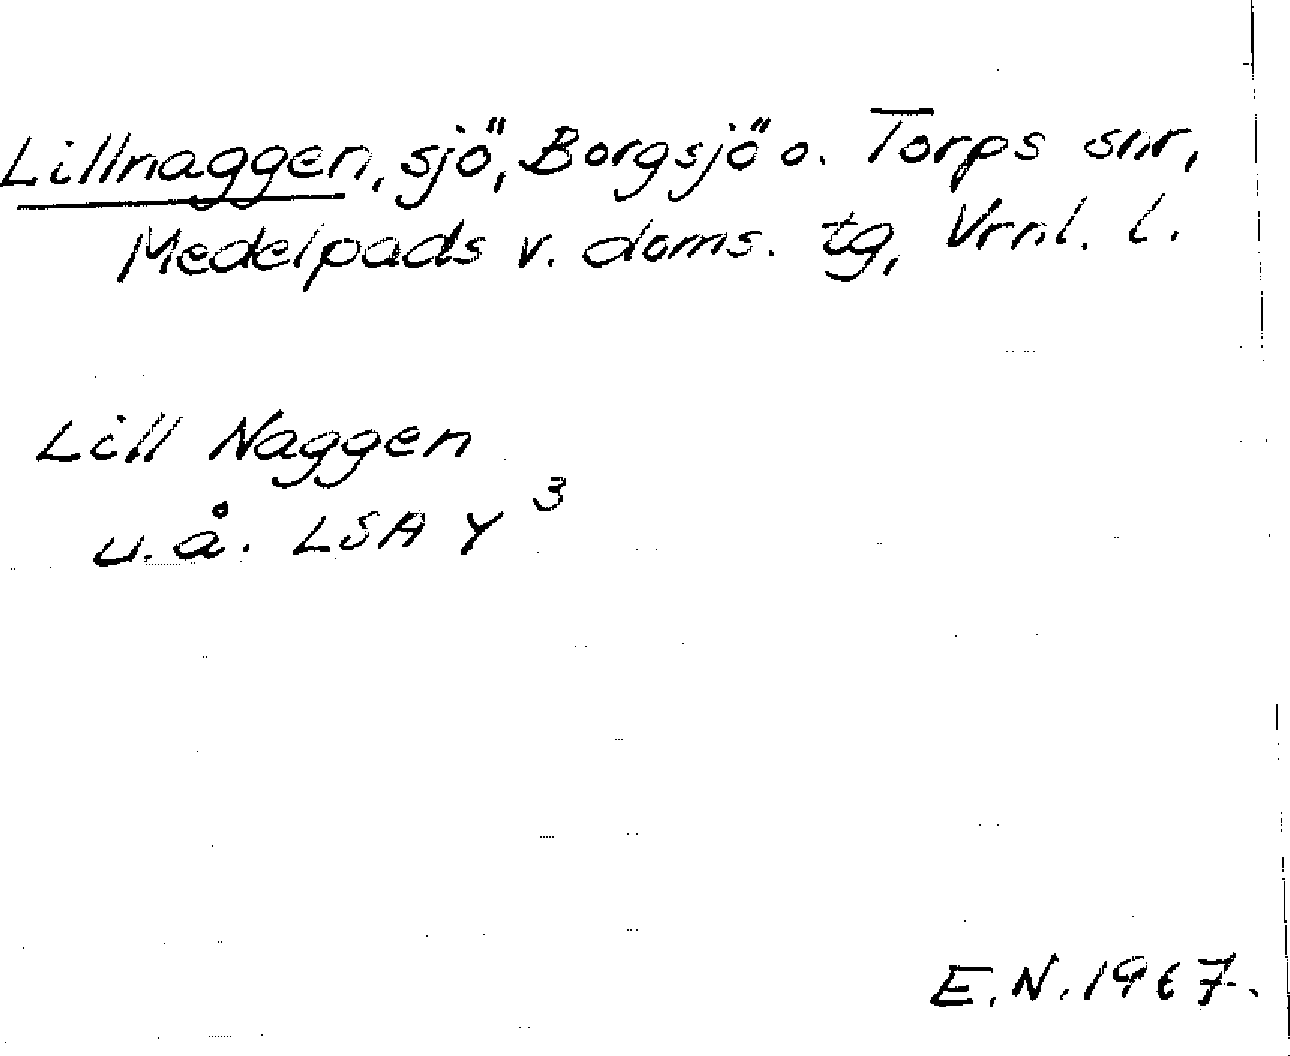 Lillnaggen, sjö, Borgsjö o. Torps snr,
Medelpads v. doms. tg, Vrnl. l.
Lill Naggen
u.å. LSA Y 3
E.N. 1967.